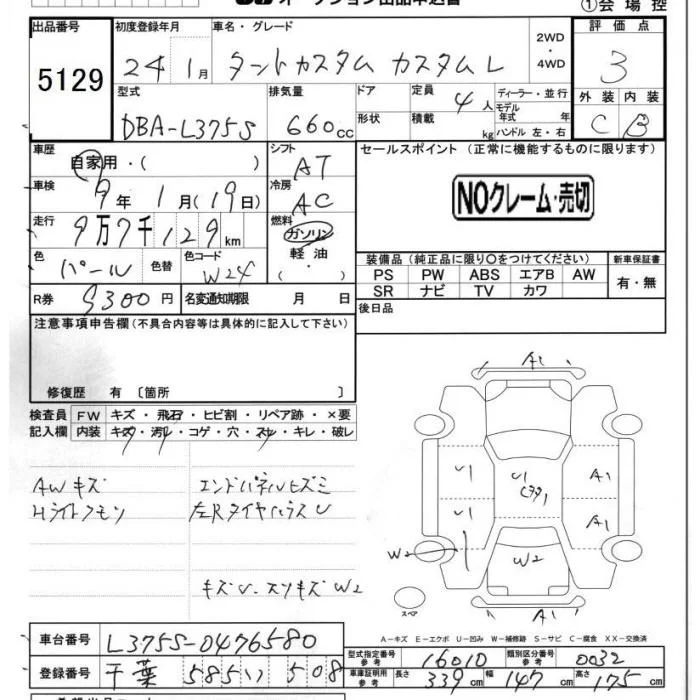 オークション出品申込書
①会場控
出品番号 5129
初度登録年月 24年 1月
車名・グレード タントカスタム カスタムL
2WD・4WD
評価点 3
外装 C 内装 B
型式 DBA-L375S
排気量 660cc
ドア形状
定員 4人
積載 kg
ディーラー・並行
モデル年式 年
ハンドル 左・右
車歴 自家用・( )
シフト AT
車検 9年 1月(19日)
冷房 AC
走行 9万7千129km
燃料 ガソリン 軽油 ・( )
色 パール 色替
色コード W24
R券 9300円 名変通知期限 月 日
セールスポイント(正常に機能するものに限ります)
NOクレーム・売切
装備品(純正品に限り○をつけてください) 新車保証書
PS PW ABS エアB AW
SR ナビ TV カワ
有・無
後日品
注意事項申告欄(不具合内容等は具体的に記入して下さい)
修復歴 有〔箇所 〕
検査員記入欄
FW キズ・飛石・ヒビ割・リペア跡・×要
内装 キズ・汚レ・コゲ・穴・スレ・キレ・破レ
AWキズ エンドパネルヒズミ
Hライトクモリ 左Rタイヤハウス U
キズU・スリキズ W2
A1
U1 U1 A1
U1 A1
W2 W2
A1
スペア
A-キズ E-エクボ U-凹み W-補修跡 S-サビ C-腐食 XX-交換済
車台番号 L375S-0476580
登録番号 千葉 585い 508
型式指定番号 参考 16010 類別区分番号 参考 0032
車庫証明用 参考 長さ 339cm 幅 147cm 高さ 175cm